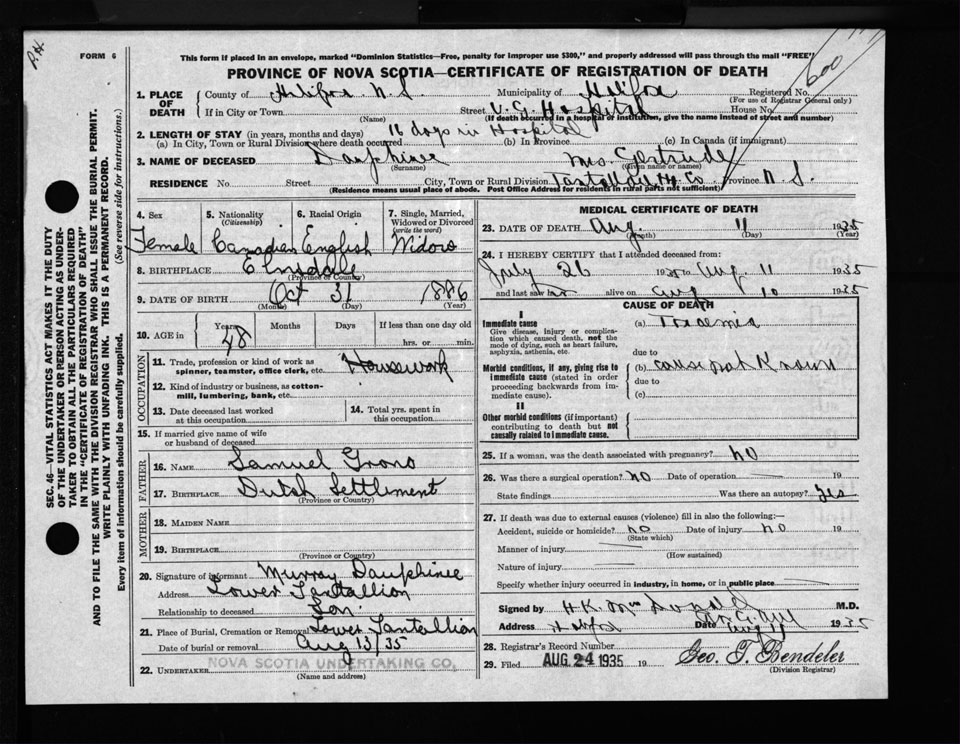 P.H.
FORM 6
This form if placed in an envelope, marked "Dominion Statistics—Free, penalty for improper use $300," and properly addressed will pass through the mail "FREE"
600
PROVINCE OF NOVA SCOTIA—CERTIFICATE OF REGISTRATION OF DEATH
SEC. 46—VITAL STATISTICS ACT MAKES IT THE DUTY
OF THE UNDERTAKER OR PERSON ACTING AS UNDER-
TAKER TO OBTAIN ALL THE PARTICULARS REQUIRED
IN THE "CERTIFICATE OF REGISTRATION OF DEATH"
AND TO FILE THE SAME WITH THE DIVISION REGISTRAR WHO SHALL ISSUE THE BURIAL PERMIT.
WRITE PLAINLY WITH UNFADING INK. THIS IS A PERMANENT RECORD.
Every item of information should be carefully supplied. (See reverse side for instructions.)
1. PLACE OF DEATH County of Halifax N.S. Municipality of Halifax Registered No.
(For use of Registrar General only)
If in City or Town Street V.G. Hospital House No.
(Name) (If death occurred in a hospital or institution, give the name instead of street and number)
2. LENGTH OF STAY (in years, months and days) 16 days in Hospital
(a) In City, Town or Rural Division where death occurred (b) In Province (c) In Canada (if immigrant)
3. NAME OF DECEASED Dauphinee Mrs. Gertrude
(Surname) (Given name or names)
RESIDENCE No. Street City, Town or Rural Division Tantallon Hx. Co. Province N.S.
(Residence means usual place of abode. Post Office Address for residents in rural parts not sufficient)
4. Sex 5. Nationality (Citizenship) 6. Racial Origin 7. Single, Married, Widowed or Divorced (write the word)
Female Canadian English Widow
8. BIRTHPLACE Elmsdale
(Province or Country)
9. DATE OF BIRTH Oct 31 1886
(Month) (Day) (Year)
10. AGE in Years Months Days If less than one day old
48 hrs. or min.
OCCUPATION
11. Trade, profession or kind of work as spinner, teamster, office clerk, etc. Housework
12. Kind of industry or business, as cotton-mill, lumbering, bank, etc.
13. Date deceased last worked at this occupation 14. Total yrs. spent in this occupation
15. If married give name of wife or husband of deceased
FATHER
16. NAME Samuel Grono
17. BIRTHPLACE Dutch Settlement
(Province or Country)
MOTHER
18. MAIDEN NAME
19. BIRTHPLACE
(Province or Country)
20. Signature of informant Murray Dauphinee
Address Lower Tantallion
Relationship to deceased Son
21. Place of Burial, Cremation or Removal Lower Tantallion
Date of burial or removal Aug 13/35
22. UNDERTAKER NOVA SCOTIA UNDERTAKING CO.
(Name and address)
MEDICAL CERTIFICATE OF DEATH
23. DATE OF DEATH Aug. 11 1935
(Month) (Day) (Year)
24. I HEREBY CERTIFY that I attended deceased from:
July 26 1935 to Aug. 11 1935
and last saw her alive on Aug 10 1935
CAUSE OF DEATH
I
Immediate cause (a) Toxemia
Give disease, injury or complication which caused death, not the mode of dying, such as heart failure, asphyxia, asthenia, etc.
due to
Morbid conditions, if any, giving rise to immediate cause (stated in order proceeding backwards from immediate cause). (b) cause not known
due to
(c)
II
Other morbid conditions (if important) contributing to death but not causally related to immediate cause.
25. If a woman, was the death associated with pregnancy? no
26. Was there a surgical operation? no Date of operation 19
State findings Was there an autopsy? Yes
27. If death was due to external causes (violence) fill in also the following:—
Accident, suicide or homicide? no Date of injury no 19
(State which)
Manner of injury
(How sustained)
Nature of injury
Specify whether injury occurred in industry, in home, or in public place
Signed by H.K. MacDonald M.D.
Address Halifax Date Aug 11 1935
28. Registrar's Record Number
29. Filed AUG. 24 1935 19 Geo. T. Bendeler
(Division Registrar)